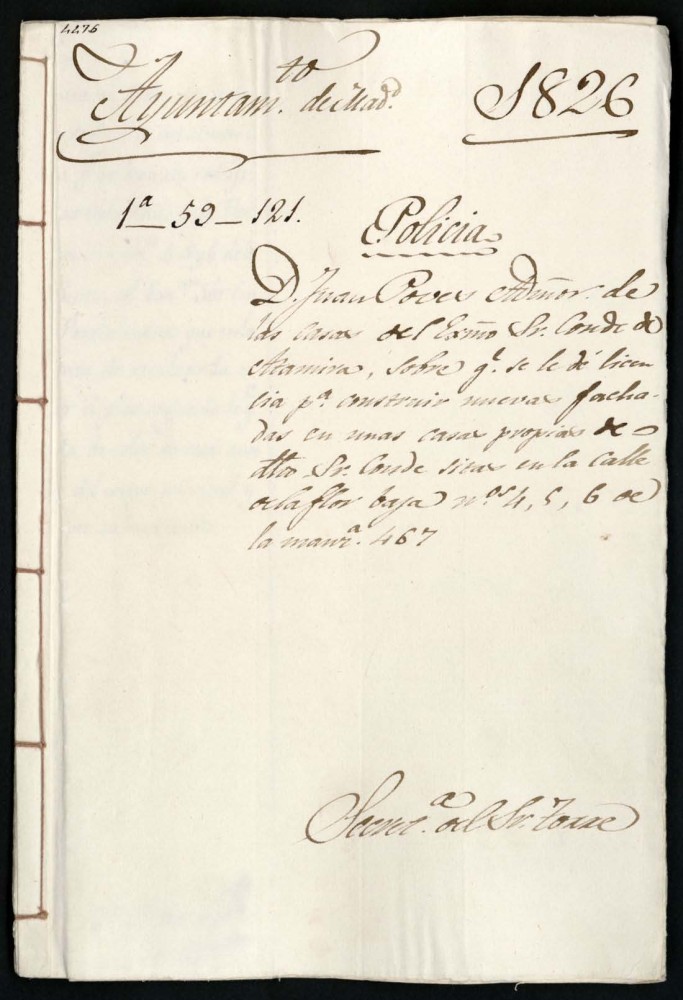 4276
Ayuntam.to de Mad.d 1826
1a_59_121.
Policia
D. Juan Poves Admor. de
las casas del Exmo Sr. Conde de
Altamira, sobre q.e se le dé licen
cia p.a construir nuevas facha-
das en unas casas propias de
dho Sr. Conde sitas en la Calle
de la flor baja n.os 4, 5, 6 de
la manz.a 467
Secret.a del Sr. Torre